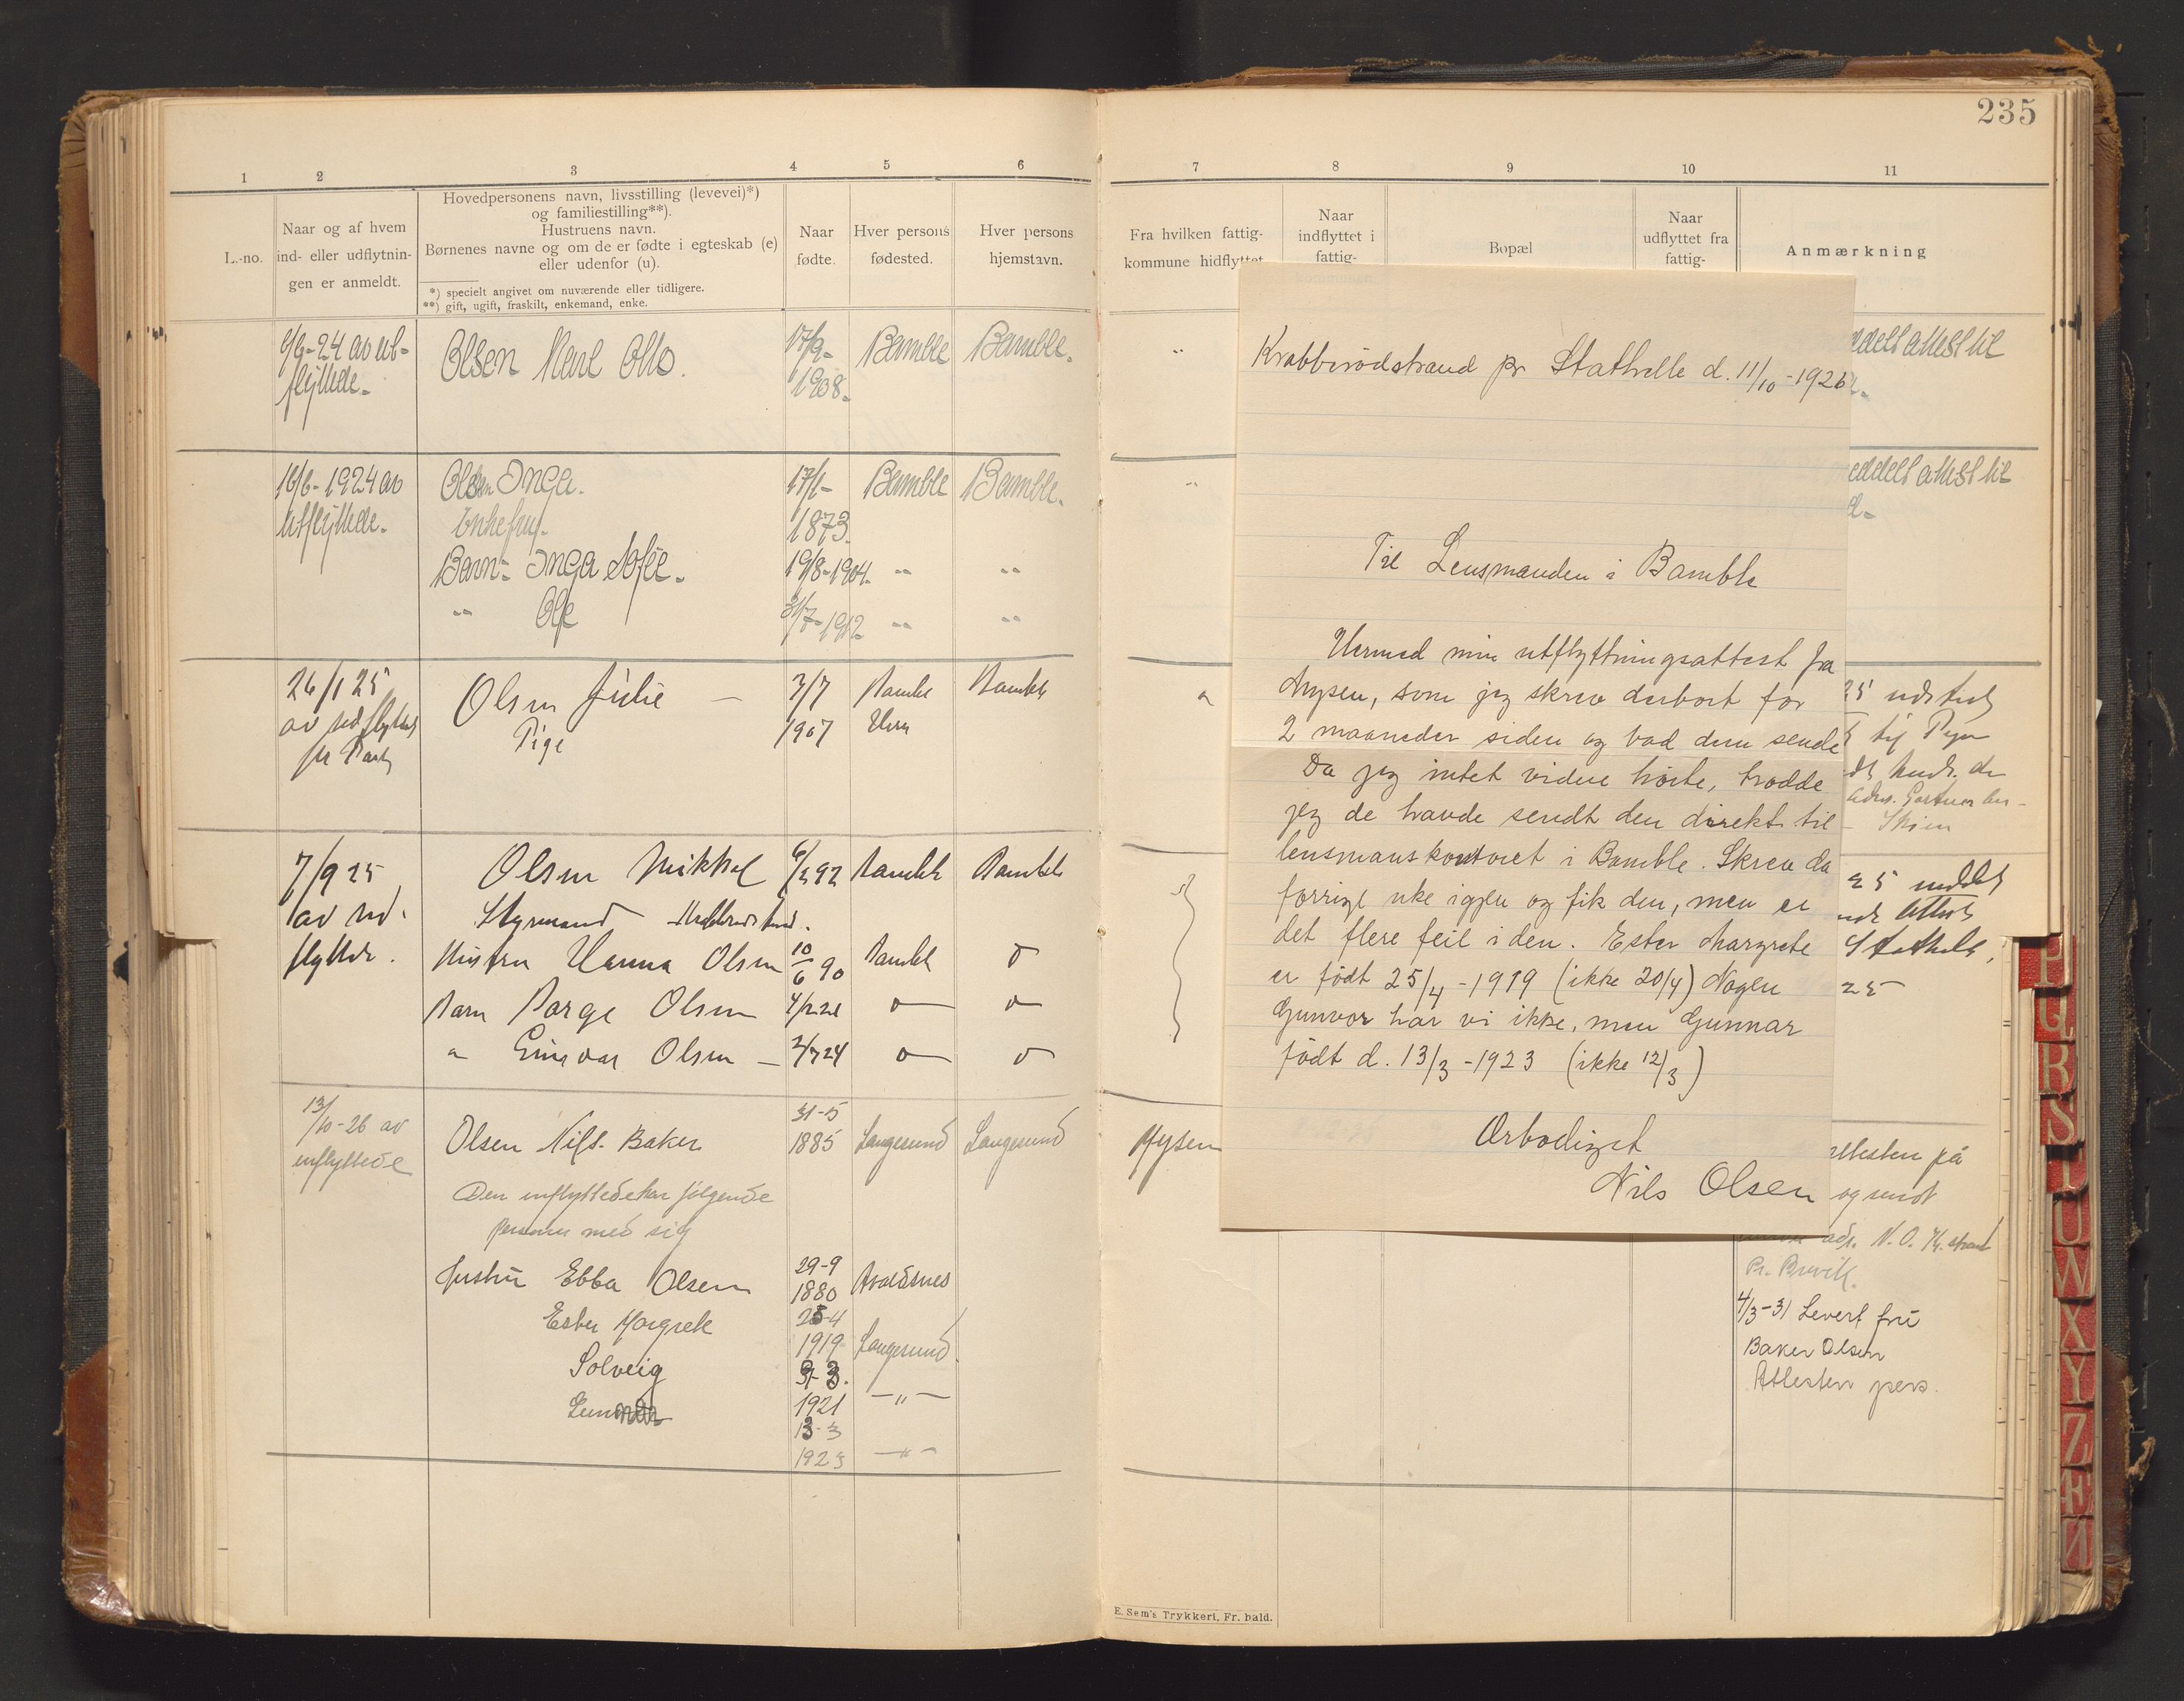 235
1 2 3 4 5 6
L.-no.
Naar og af hvem
ind- eller udflytnin-
gen er anmeldt.
Hovedpersonens navn, livsstilling (levevei)*)
og familiestilling**).
Hustruens navn.
Børnenes navne og om de er fødte i egteskab (e)
eller udenfor (u).
*) specielt angivet om nuværende eller tidligere.
**) gift, ugift, fraskilt, enkemand, enke.
Naar
fødte.
Hver persons
fødested.
Hver persons
hjemstavn.
9/9-24 av ut-
flyttede.
Olsen Karl Otto.
17/9-
1908.
Bamble
Bamble.
16/6-1924 av
utflyttede.
Olsen Inga.
Enkefru.
17/1-
1873.
Bamble
Bamble.
Barn: Inga Sofie.
19/8-1904.
" "
" Olf
31/7-1912
" "
26/1 25
av udflytted
Olsen Julie —
Pige
3/7
1907
Bamble
Bamble
7/9 25
av ud-
flyttede.
Olsen Mikkal
Styrmand
92
Bamble
Bamble
Hustru Hanna Olsen
10/6 90
Bamble
Barn Borge Olsen
" Olsen —
2/7 24
13/10-26 av
innflyttede
Olsen Nils. Baker
31-5
1885
Langesund
Langesund
Den innflyttede har følgende
personer med sig
Hustru Ebba Olsen
29-9
1880
Avaldsnes
Ester Margrete
25-4
1919
Langesund
Solveig
1921
—"—
Gunnar
13-3
1923
—"—
7 8 9 10 11
Fra hvilken fattig-
kommune hidflyttet
Naar
indflyttet i
fattig-
Bopæl
Naar
udflyttet fra
fattig-
Anmærkning
"
"
"
Mysen
Krabberødstrand pr Stathelle d. 11/10-1926
Til Lensmanden i Bamble
Hermed min utflyttningsattest fra
Mysen, som jeg skrev derbort for
2 maaneder siden og bad dem sende
Da jeg intet videre hørte, trodde
jeg de havde sendt den direkte til
lensmanskontoret i Bamble. Skrev da
forrige uke igjen og fik den, men er
det flere feil i den. Ester Margrete
er født 25/4-1919 (ikke 20/4) Nogen
Gunvor har vi ikke, men Gunnar
født d. 13/3-1923 (ikke 12/3)
Ærbødigst
Nils Olsen
eddelt attest til
eddelt attest til
25 utsted
Skien
25 meddelt
Attest
Stathelle,
25
attesten på
og sendt
adr. N. O. K. strand
Pr. Brevik.
4/3-31 Levert fru
Baker Olsen
Attesten pers.
P
Q
R
S
T
U
W
X
Y
Z
Æ
E. Sem's Trykkeri, Fr. hald.